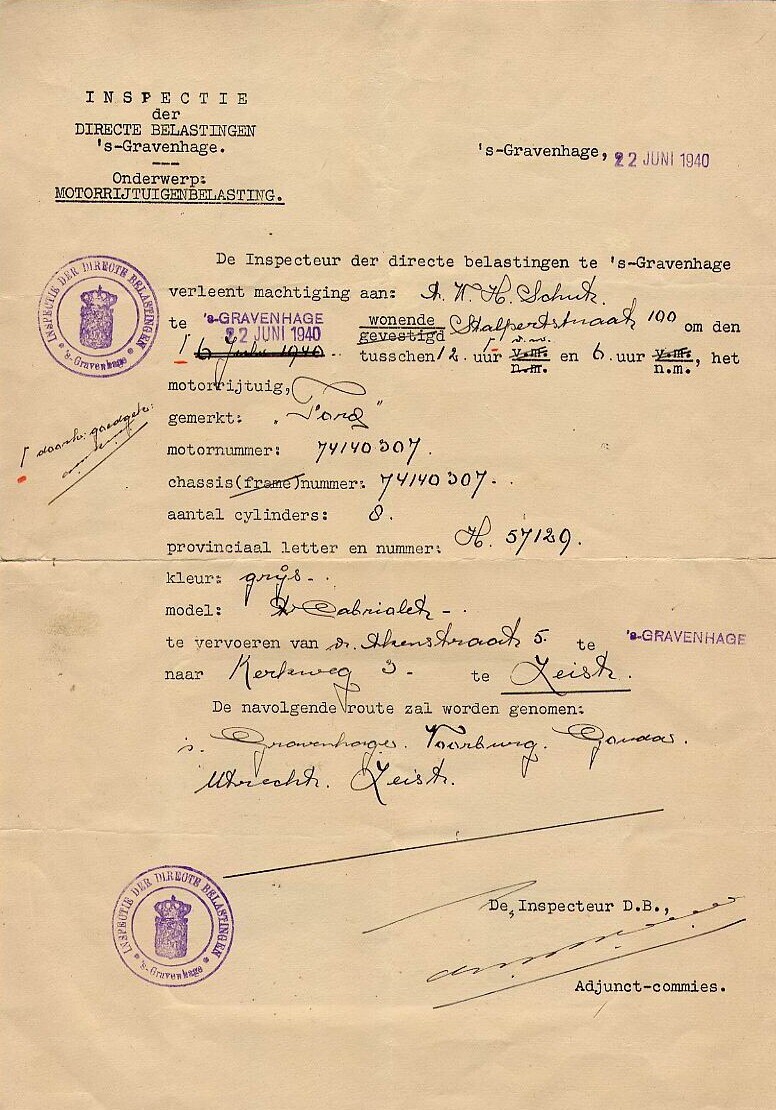 INSPECTIE
der
DIRECTE BELASTINGEN
's-Gravenhage.
Onderwerp:
MOTORRIJTUIGENBELASTING.
's-Gravenhage, 22 JUNI 1940
De Inspecteur der directe belastingen te 's-Gravenhage
verleent machtiging aan: W. H. Schut.
te 's-GRAVENHAGE wonende gevestigd Stalpertstraat 100 om den
22 JUNI 1940
6 1940 tusschen 12 uur v.m. n.m. en 6 uur v.m. n.m., het
motorrijtuig,
gemerkt: "Ford"
motornummer: 74140307.
chassis(frame)nummer: 74140307.
aantal cylinders: 8.
provinciaal letter en nummer: H. 57129.
kleur: grijs
model: Cabriolet
te vervoeren van v. Akenstraat 5. te 's-GRAVENHAGE
naar Kerkweg 3 te Zeist.
De navolgende route zal worden genomen:
s. Gravenhage. Voorburg. Gouda.
Utrecht. Zeist.
De Inspecteur D.B.,
Adjunct-commies.
doorh. goedgek.
INSPECTIE DER DIRECTE BELASTINGEN
's-Gravenhage
INSPECTIE DER DIRECTE BELASTINGEN
's-Gravenhage